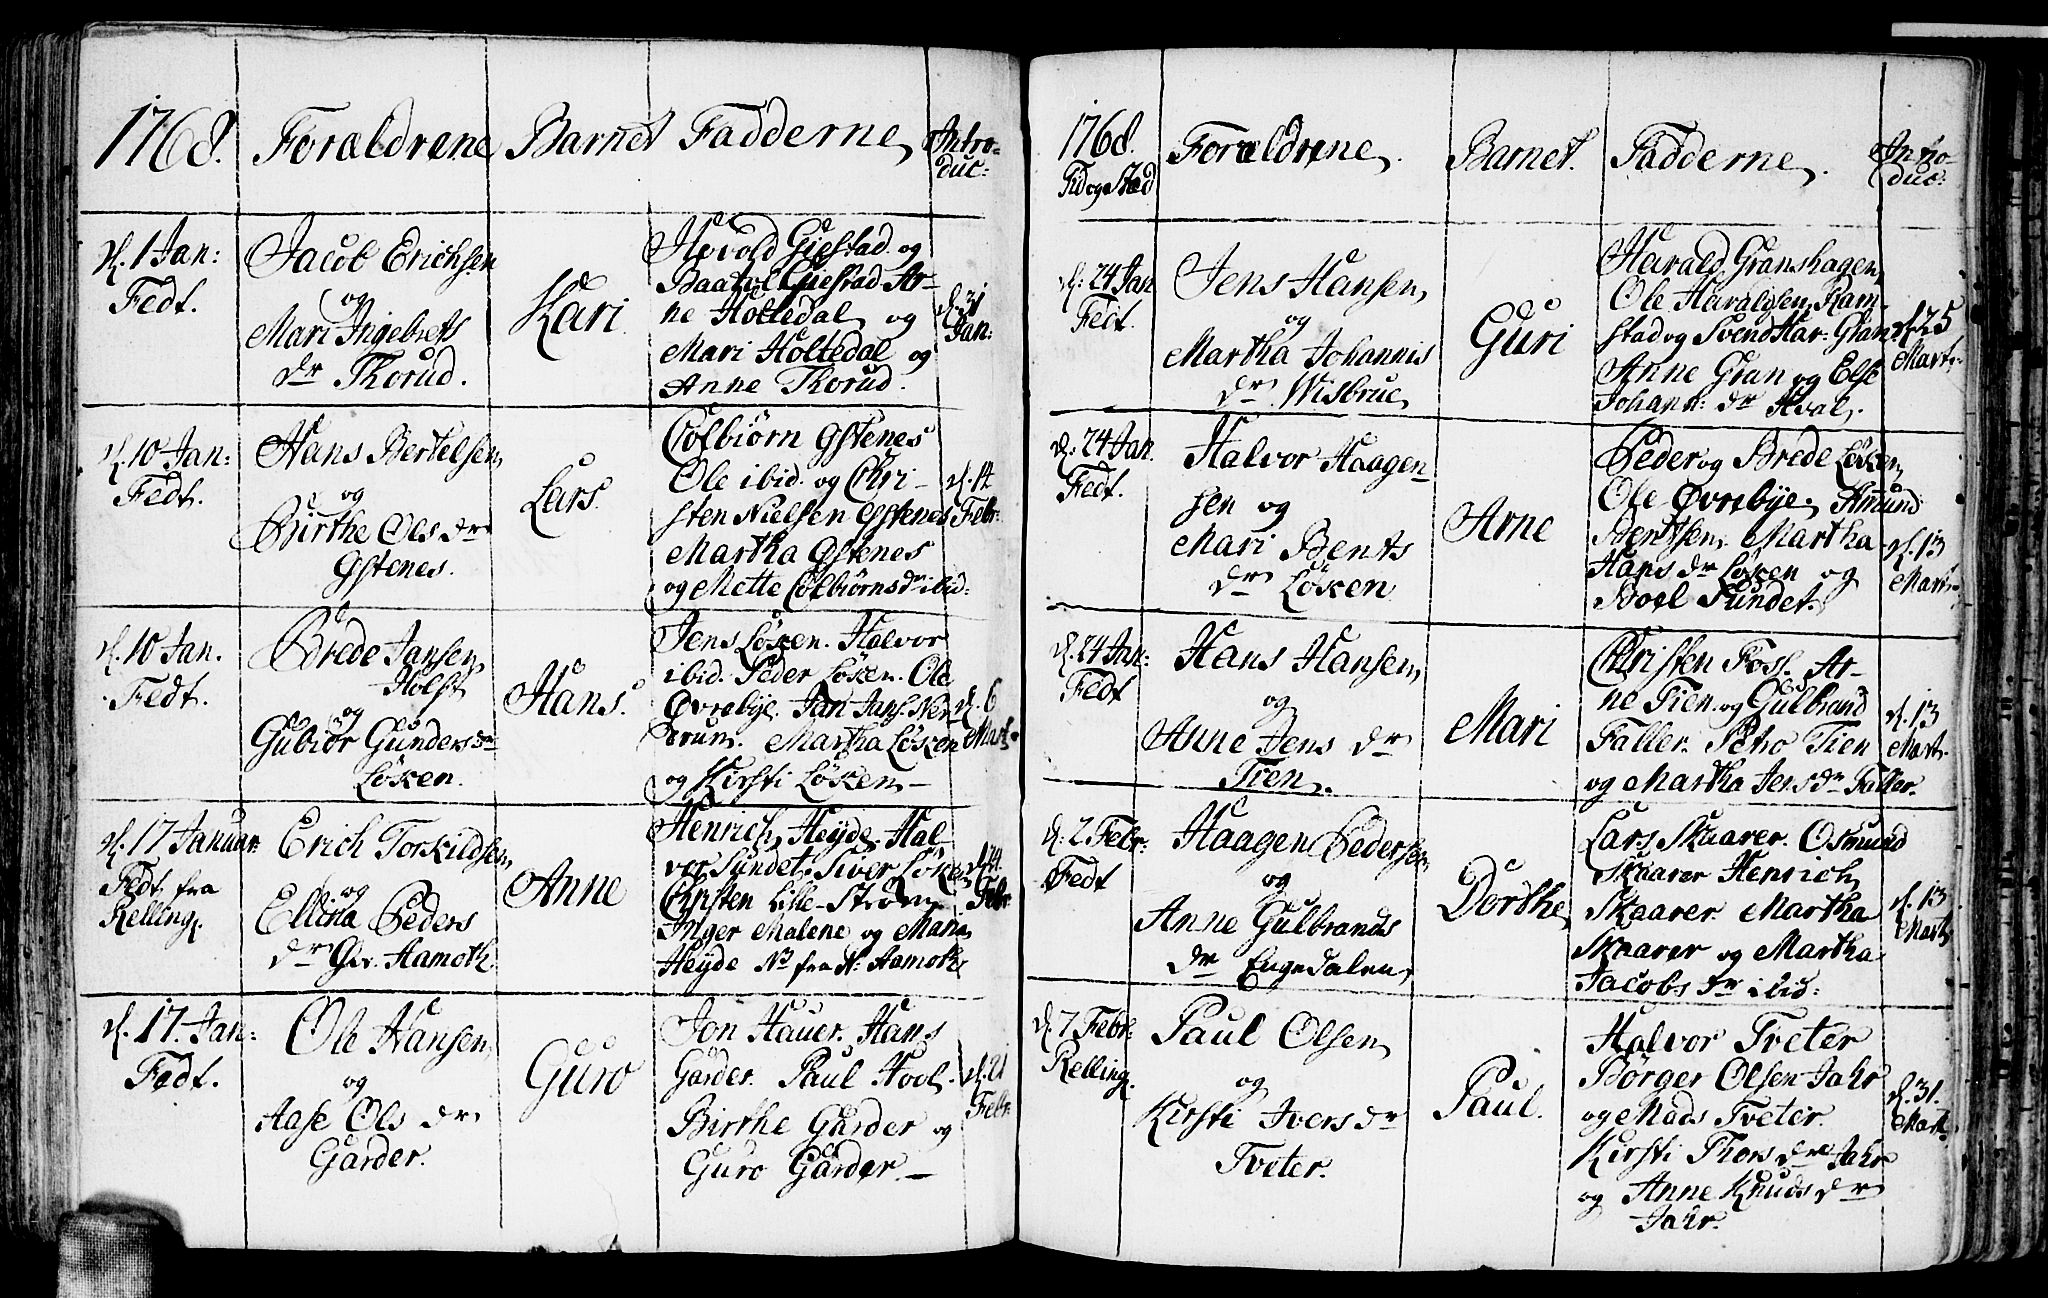 1768.
Forældrene
Barnet
Fadderne
Introduc:
d. 1 Jan:
Fedt.
Jacob Erichsen
og
Mari Ingebrets
dr Thorud.
Kari
Havold Giestad og
Giestad Ar-
ne Holtedal og
Mari Holtedal og
Anne Thorud.
d. 31
Jan:
d. 10 Jan:
Fedt.
Hans Bertelsen
og
Birthe Ols dr
Gstenes.
Lars.
Colbiørn Gstenes
Ole ibid. og Chri-
sten Nielsen Gstenes
Martha Gstenes
og Mette Colbiørns dr ibid:
d. 14
Febr:
d. 10 Jan.
Fedt.
Brede Jansen
Holst
og
Gubiør Gunders dr
Løken.
Hans.
Jens Løken. Halvor
ibid. Peder Løken. Ole
Øvrebye. Jan Jans. Ner
Martha Løken
og Kirsti Løken –
d. 6
Mart:
d. 17 Januar
Fedt fra
Relling.
Erich Torkildsen
og
Peders
dr Aamoth.
Anne
Henrich Heyde. Hal
vor Sundet. Siver Løken
Christen Lille-Strøm
Inger Malene og Maria
Heyde fra N: Aamoth
d. 14.
Febr.
d. 17. Jan:
Fedt.
Ole Hansen
og
Aase Ols dr
Garder.
Guro
Jon Hauer. Hans
Garder. Paul Hvol.
Birthe Garder og
Guro Garder –
d. 21
Febr:
1768.
Tid og Sted
Forældrene.
Barnet.
Fadderne.
Introduc:
d: 24 Jan
Fedt.
Jens Hansen
og
Martha Johannis
dr Wisbrue
Guri
Harald Granshagen
Ole Haraldsen Ram-
stad og Svend Har: Gran
Anne Gran og Else
Johann: dr Hval.
d. 25
Mart:
d: 24 Jan.
Fedt.
Halvor Haagen
sen og
Mari Bents
dr Løken
Arne
Peder og Brede Løken
Ole Øvrebye. Amund
Bentsen. Martha
Hans dr Løken og
Boel Sundet.
d. 13
Mart:
d. 24 Jan:
Fedt
Hans Hansen
og
Anne Jens dr
Tien.
Mari
Christen Foss. Ar-
ne Tien. og Gulbrand
Faller. Tien
og Martha Jens dr Faller.
d. 13
Mart:
d: 2 Febr:
Fedt
Haagen Pedersen
og
Anne Gulbrands
dr Engedalen
Dorthe
Lars Skaarer. Osmund
Skaarer Henrich
Skaarer. Martha
Skaarer og Martha
Jacobs dr ibid:
d. 13
Mart:
d. 7 Febr:
Relling.
Paul Olsen
og
Kirsti Ivers dr
Tveter.
Paul.
Halvor Tveter
Børger Olsen Jahr
og Mads Tveter.
Kirsti Thors dr Jahr
og Anne Knuds dr
Jahr.
d. 31.
Mart: